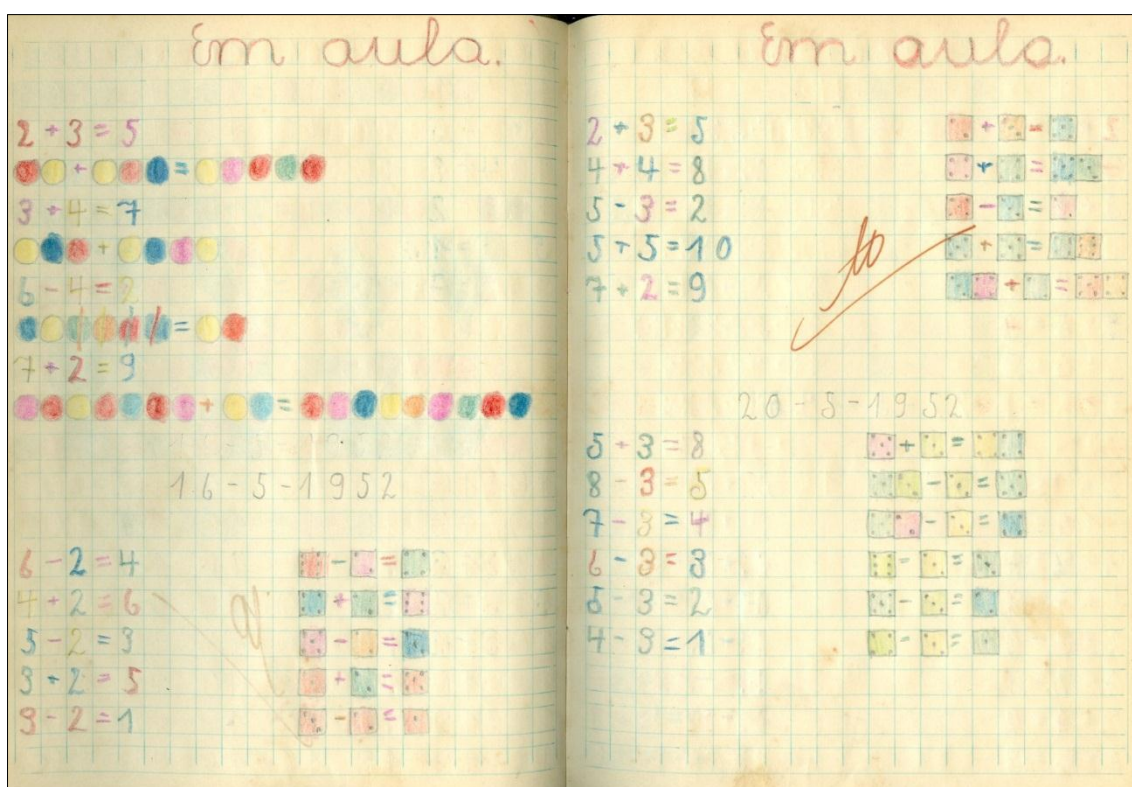 Em aula.
2 + 3 = 5
+ =
3 + 4 = 7
+
6 - 4 = 2
=
7 + 2 = 9
+ =
16-5-1952
6 - 2 = 4 - =
4 + 2 = 6 + =
5 - 2 = 3 - =
3 + 2 = 5 + =
3 - 2 = 1 - =
Em aula.
2 + 3 = 5 + =
4 + 4 = 8 + =
5 - 3 = 2 - =
5 + 5 = 10 + =
7 + 2 = 9 + =
20-5-1952
5 + 3 = 8 + =
8 - 3 = 5 - =
7 - 3 = 4 - =
6 - 3 = 3 - =
5 - 3 = 2 - =
4 - 3 = 1 - =